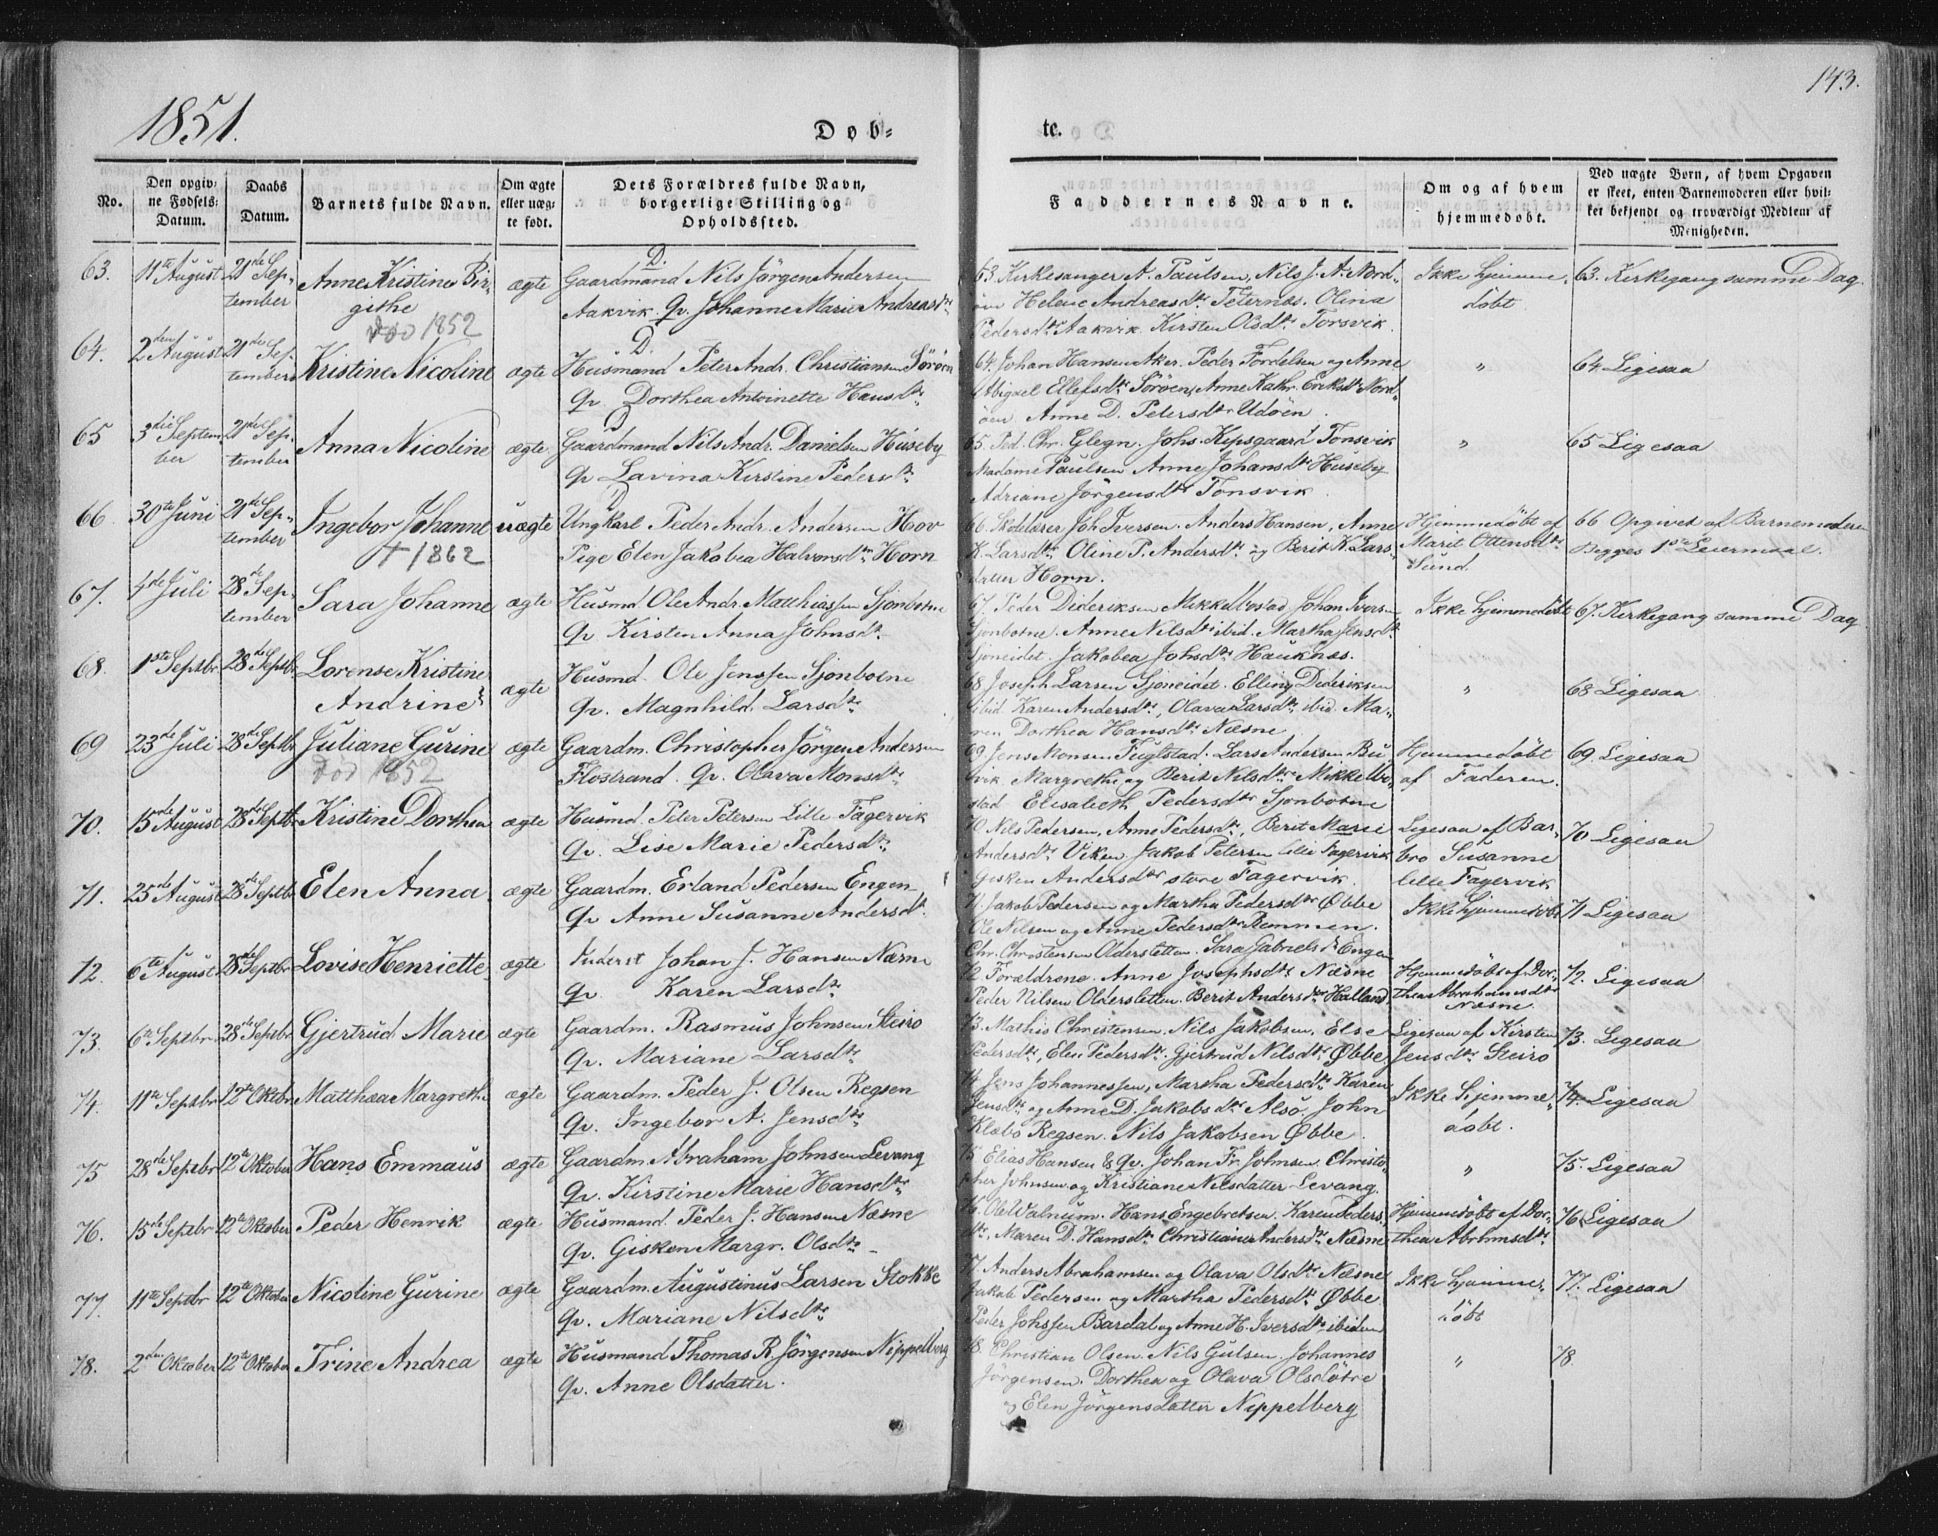 1851.
Døb-
te.
143.
No.
Den opgiv-
ne Fødsels-
Datum.
Daabs
Datum.
Barnets fulde Navn.
Om ægte
eller uæg-
te født.
Dets Forældres fulde Navn,
borgerlige Stilling og
Opholdssted.
Faddernes Navne.
Om og af hvem
hjemmedøbt.
Ved uægte Børn, af hvem Opgaven
er skeet, enten Barnemoderen eller hvil-
ket bekjendt og troværdigt Medlem af
Menigheden.
63. 11te August 21de Sep-
tember Anne Kristine Bir-
githe
død 1852
ægte
D.
Gaardmand Nils Jörgen Andersen
Aakvik Qv. Johanne Marie Andreasdtr
63. Kirkesanger A. Paulsen, Nils J. A. Nord-
öen Helene Andreasdtr Teternæs. Olina
Pedersdtr Aakvik. Kirsten Olsdtr Torsvik.
Ikke hjemme-
döbt.
63. Kirkegang samme Dag.
64. 2den August 21de Sep-
tember Kristine Nicoline ægte
D.
Husmand Peter Andr. Christiansen Söröen
Qv. Dorthea Antoinette Hansdtr
64. Johan Hansen Aker. Peder Tordelsen og Anne
Abigael Ellefsdtr Söröen, Anne Kathr. Eriksdtr Nord-
öen Anne D. Petersdtr Udöen.
"
64 Ligesaa
65 3die Septem-
ber 21de Sep-
tember Anna Nicoline ægte
D
Gaardmand Nils Andr. Danielsen Huseby
Qv Lavina Kirstine Pedersdtr
65. Ped. Chr. Glegn. Johs. Kipsgaard Tonsvik
Madame Paulsen Anne Johansdtr Huseby
Adriane Jörgensdtr Tonsvik.
"
65 Ligesaa
66. 30te Juni 21de Sep-
tember Ingebor Johanne
+ 1862
uægte
D
Ungkarl Peder Andr. Andersen Hov
Pige Elen Jakobea Halvorsdtr Horn
66. Skolelærer Joh. Iversen. Anders Hansen, Anne
K. Larsdtr, Oline P. Andersdtr og Berit K. Lars-
datter Horn.
Hjemmedöbt af
Marit Ottensdtr
Sund.
66 Opgivet af Barnemoderen
Begges 1ste Leiermaal.
67. 4de Juli 28de Sep-
tember Sara Johanne ægte
Husmd Ole Andr. Matthiassen Sjonbotne
Qv. Kirsten Anna Johnsdtr
67. Peder Dideriksen Mikkelbostad, Johan Ivers
Sjonbotne. Anne Nilsdtr ibid. Martha Jensdtr
Sjoneidet. Jakobea Johsdtr Hauknæs.
Ikke hjemmedöbt
67. Kirkegang samme Dag
68. 1ste Septbr 28de Septbr Lorense Kristine
Andrine
ægte
Husmd. Ole Jenssen Sjonbotne
Qv. Magnhild Larsdtr
68 Joseph Larsen Sjoneidet. Elling Dideriksen
ibid. Karen Andersdtr, Olava Larsdtr ibid. Ma-
ren Dorthea Hansdtr Næsne
"
68 Ligesaa
69 23de Juli 28de Septbr Juliane Gurine
død 1852
ægte
Gaardm. Christopher Jörgen Andersen
Flostrand. Qv. Olava Monsdtr
69 Jens Monsen Fuglstad. Lars Andersen Bu-
vik Margrethe og Berit Nilsdtr Mikkelbo-
stad Elisabeth Pedersdtr Sjonbotne
Hjemmedöbt
af Faderen.
69. Ligesaa
70. 15de August 28de Septbr Kristine Dorthea ægte
Husmd. Peter Petersen Lille Fagervik
Qv. Lise Marie Pedersdtr
70 Nils Pedersen, Anne Pedersdtr, Berit Marie
Andersdtr Viken Jakob Petersen lille Fagervik
Gesken Andersdtr store Fagervik.
Ligesaa af Bar-
bro Susanne
lille Fagervik
70 Ligesaa
71. 25de August 28de Septbr Elen Anna ægte
Gaardm. Erland Pedersen Engen
Qv Anne Susanne Andersdtr
71. Jakob Pedersen og Martha Pedersdtr Öbbe
Ole Nilsen og Anne Pedersdtr Remmen.
Chr. Christensen Oldersletten. Sara Gabrielsdtr Engen
Ikke hjemmedöbt
71 Ligesaa
72. 6te August 28de Septbr Lovise Henriette ægte
Inderst Johan J. Hansen Næsne
Qv Karen Larsdtr
72 Forældrene. Anne Josephsdtr Næsne
Peder Nilsen Oldersletten. Berit Andersdtr Halland
Hjemmedöbt af Dor-
thea Abrahamsdtr
Næsne
72. Ligesaa
73. 6te Septbr 28de Septbr Gjertrud Marie ægte
Gaardm. Rasmus Johnsen Steiro
Qv. Mariane Larsdtr
73. Mathis Christensen, Nils Jakobsen, Else
Pedersdtr, Elen Pedersdtr. Gjertrud Nilsdtr Öbbe
Ligesaa af Kirsten
Jensdtr Steiro
73. Ligesaa
74. 11te Septbr 12te Oktbr Matthea Margreth. ægte
Gaardm. Peder J. Olsen Regsen
Qv. Ingebor A. Jensdtr
74 Jens Johannessen, Marsha Pedersdtr Karen
Jensdtr og Anne D. Jakobsdtr Alsö, John
Klæbo Regsen. Nils Jakobsen Öbbe.
Ikke Hjemme-
döbt.
74. Ligesaa
75 28de Septbr 12te Oktober Hans Emmaus ægte
Gaardm. Abraham Johnsen Levang
Qv. Kirstine Marie Hansdtr
75 Elias Hansen & Qv. Johan Fr. Johnsen, Christo-
pher Johnsen og Kristiane Nilsdatter Levang.
"
75. Ligesaa
76. 15de Septbr 12te Oktober Peder Henrik ægte
Husmand. Peder J. Hansen Næsne
Qv. Gisken Margr. Olsdtr
76. Ole Valnum. Hans Engebretsen. Karen Peders-
dtr, Maren D. Hansdtr Christiane Andersdtr Næsne
Hjemmedöbt af Dor-
thea Abrhmsdtr
76 Ligesaa
77. 11te Septbr 12te Oktober Nicoline Gurine ægte
Gaardm. Augustinus Larsen Stokke
Qv. Mariane Nilsdtr
77. Anders Abrahamsen og Olava Olsdtr Næsne
Jakob Pedersen og Martha Pedersdtr Öbbe
Peder Johssen Bardal og Anne H. Iversdtr ibidem
Ikke hjemme-
döbt
77. Ligesaa
78. 2den Oktober 12te Oktober Trine Andrea ægte
Husmand Thomas R. Jörgensen Nippelberg
Qv. Anne Olsdatter.
78. Christian Olsen. Nils Gulsen. Johannes
Jörgensen. Dorthea og Olava Olsdötre
og Elen Jörgensdatter Nippelberg
"
78